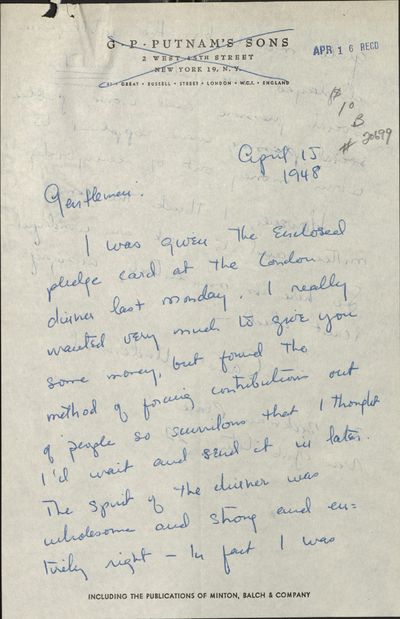 G · P · PUTNAM'S SONS
2 WEST 45TH STREET
NEW YORK 19, N. Y.
GREAT · RUSSELL · STREET · LONDON · W.C.1. · ENGLAND
APR 16 RECD
10
B
# 20699
April, 15
1948
Gentlemen.
I was given The Enclosed
pledge card at the London
dinner last monday. I really
wanted very much to give you
some money, but found the
method of forcing contributions out
of people so scurrilous that I thought
I'd wait and send it in later.
The spirit of the dinner was
wholesome and strong and en=
tirely right – In fact I was
INCLUDING THE PUBLICATIONS OF MINTON, BALCH & COMPANY